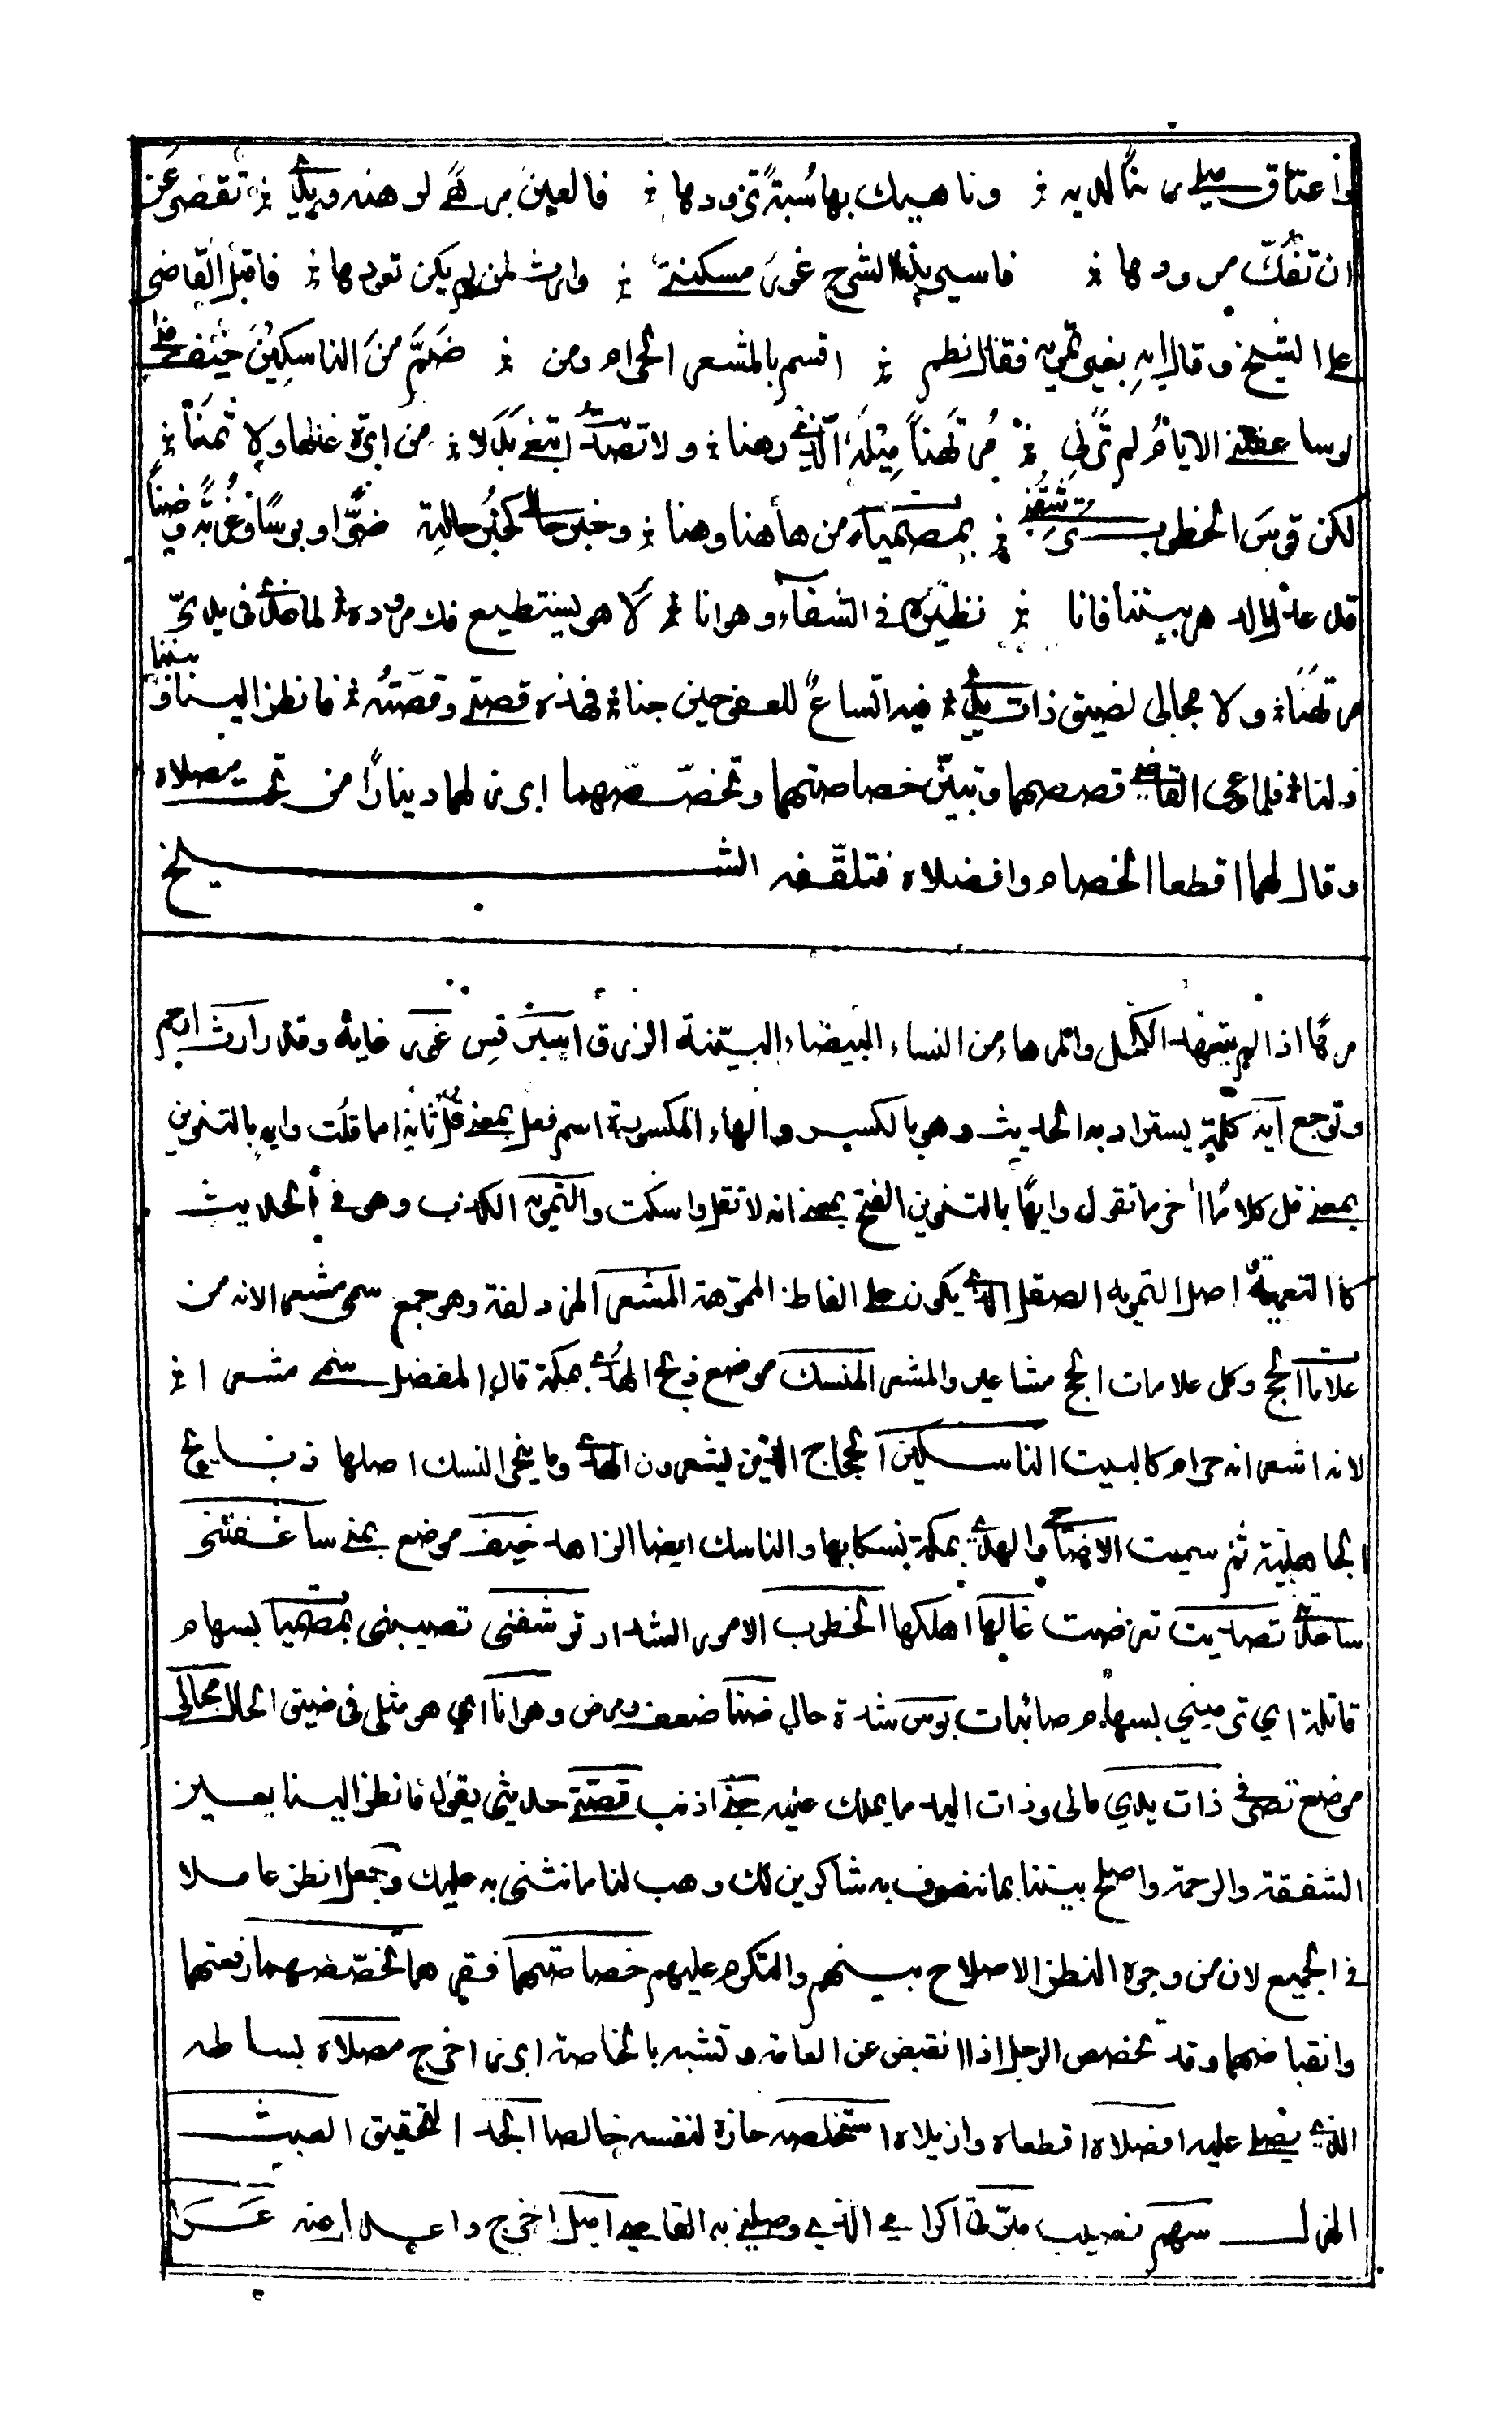 واعتاق ميلي رهنا لديه ۞ وناهيك بها سُبةً تزودها ۞ فالعين مرهى لرهنه ويدي ۞ تقصر عن
ان تفكّ مرودها ۞ فاسبر بذا الشرح غور مسكنتي ۞ وارث لمن لم يكن تعودها ۞ فاقبل القاضي
على الشيخ وقال ايهِ بغير تمويه فقال نظم ۞ اقسم بالمشعر الحرام ومن ۞ ضمَّ منَ الناسكينَ خيف منى
لو ساعفتني الايامُ لم ترني ۞ مُرتهناً ميلَهُ الّذي رهنا ۞ ولا تصدّيتُ ابتغي بدلا ۞ من ابرة غالها ولا ثمنا ۞
لكن قوس الخطوب ترشقني ۞ بمصميات من هاهنا وهنا ۞ وخبر حالي كخبر حالته ضرّا وبوسًا وغربةً وضنا
قد عدل الدهر بيننا فانا ۞ نظيره في الشقاء وهو انا ۞ لا هو يستطيع فك مروده ۞ لما غدا في يديّ
مرتهنا ۞ ولا مجالي لضيق ذات يدي ۞ فيه اتساعٌ للعفو حين جنا ۞ فهذه قصتي وقصّته ۞ فانظر الينا وبيننا
ولنا ۞ فلما وعى القاضي قصصهما وتبيّن خصاصتهما وتخصّصهما ابرز لهما دينارًا من تحت مصلاه
وقال لهما اقطعا الخصام وافصلاه فتلقّفه الشيخ
مرها اذا لم يتعهد الكحل والمرهاء من النساء البيضاء البيّنة الزرق اسبر قس غور غاية وقدر ارث ارحم
وتوجع ايه كلمة يستزاد به الحديث وهي بالكسر والهاء المكسورة اسم فعل بمعنى قل ثانيا ما قلت وايهٍ بالتنوين
بمعنى قل كلامًا اخر ما تقول وايهًا بالتنوين الفتح بمعنى انه لا تقل واسكت والتمويه الكذب وهو في الحديث
كالتعمية اصل التمويه الصقل الذي يكون على الفاظ المموهة المشعر المزدلفة وهو جمع سمى مشعرا لانه من
علامات الحج وكل علامات الحج مشاعير والمشعر المنسك موضع ذبح الهدي بمكة قال المفضل سمي مشعرا
لانه اشعر انه حرام كالبيت الناسكين الحجاج الذين يشعرون الهدي وما ينحر النسك اصلها ذبايح
الجاهلية ثم سميت الاضاحي والهدي بمكة نسكا بها والناسك ايضا الزاهد خيف موضع بمنى ساعفتني
ساعدني تصديت تعرضت غالها اهلكها الخطوب الامور الشداد ترشقني تصيبني بمصميات بسهام
قاتلة اي ترميني بسهام صائبات بوس شدة حال ضنا ضعف ومرض وهو انا اي هو مثلي في ضيق الحال مجالي
موضع تصرفي ذات يدي مالي وذات اليد ما يملك عينه جنى اذنب قصتي حديثي يقول فانظر الينا بعين
الشفقة والرحمة واصلح بيننا بما ننصرف به شاكرين لك وهب لنا ما نثني به عليك وجعل انظر عاملا
في الجميع لان من وجوه النظر الاصلاح بينهم والتكرم عليهم خصاصتهما فقرهما تخصّصهما رفعتهما
وانقباضهما وقد تخصص الرجل اذا انقبض عن العامة وتشبه بالخاصة ابرز اخرج مصلاه بساطه
الذي يصلي عليه افصلاه اقطعاه وازيلاه استخلصه حازه لنفسه خالصا الجد التحقيق العبث
الهزل سهم نصيب مبرتي اكرامي الذي وصلني به القاضي اميل اخرج واعدل ارصه عَسَرَا